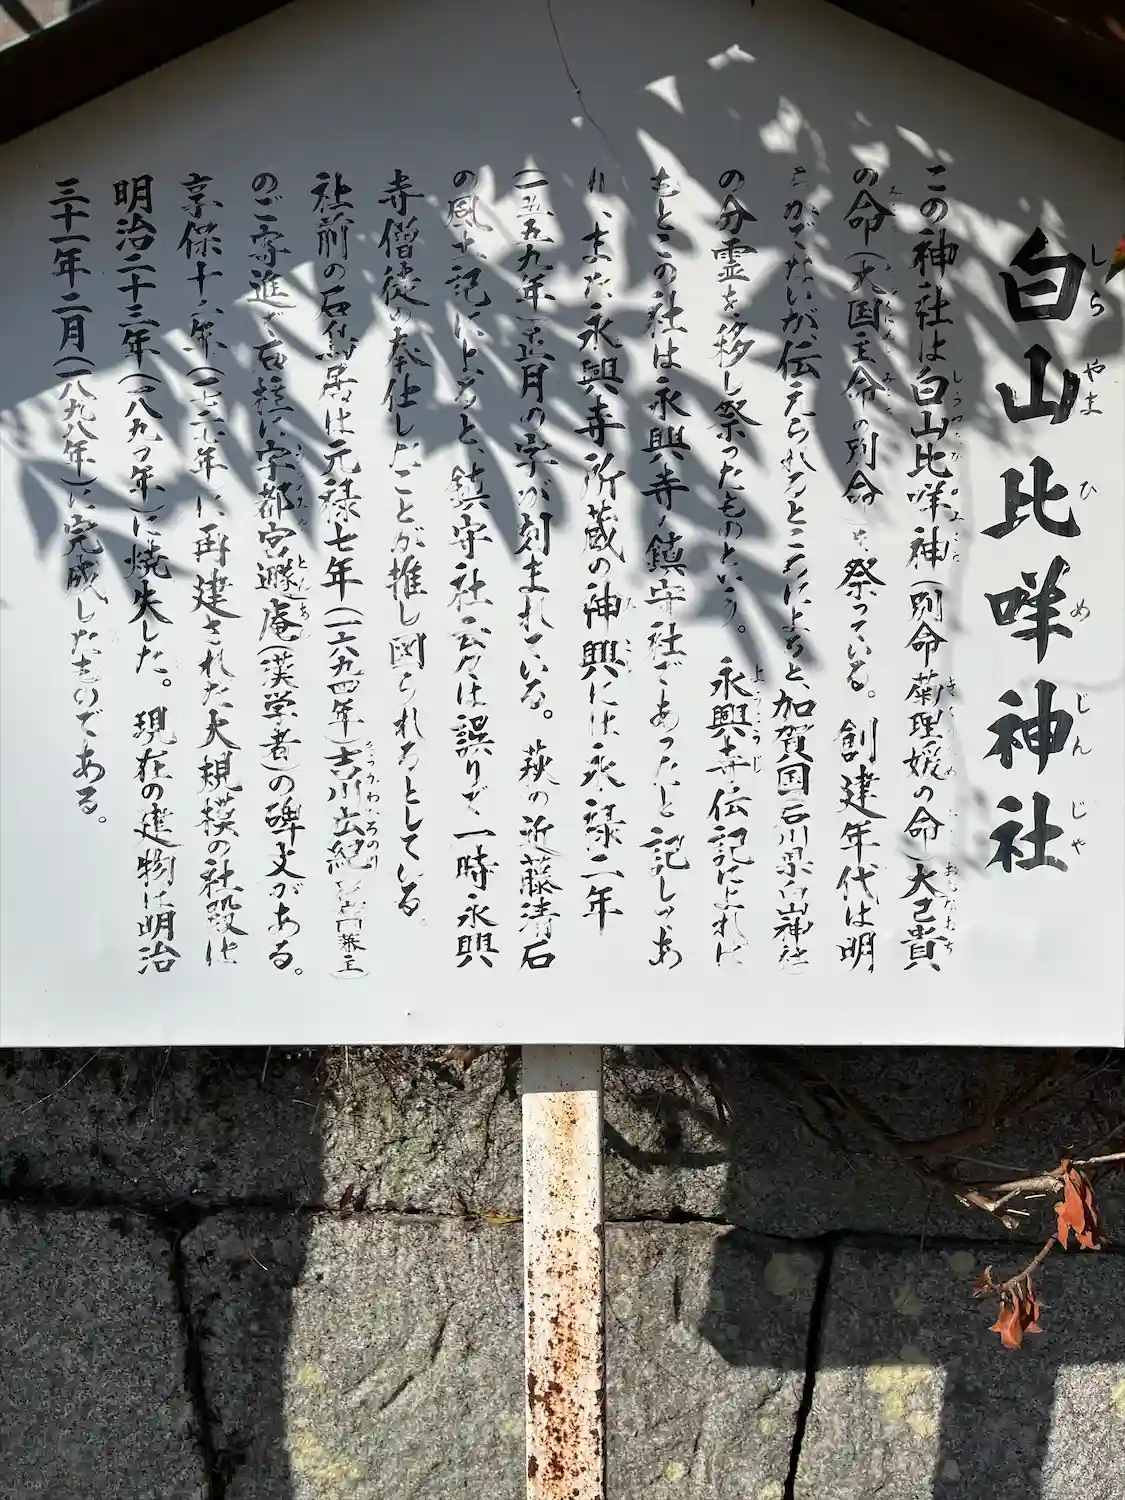 白山比咩神社
しら やま ひ め じん じゃ
この神社は白山比咩神(別命菊理媛の命)大己貴
の命(大国主命の別命)を祭っている。創建年代は明
らかでないが伝えられるところによると、加賀国(石川県白山神社)
の分霊を移し祭ったものという。永興寺伝記によれば
もとこの社は永興寺の鎮守社であったと記してあ
り、また永興寺所蔵の神輿には永禄二年
(一五五九年)正月の字が刻まれている。萩の近藤清石
の風土記によると、鎮守社云々は誤りで一時永興
寺僧徒の奉仕したことが推し図られるとしている。
社前の石鳥居は元禄七年(一六九四年)吉川広紀
のご寄進で石柱に宇都宮遯庵(漢学者)の碑文がある。
享保十 年( 年)に再建された大規模の社殿は
明治二十三年(一八九〇年)に焼失した。現在の建物は明治
三十一年二月(一八九八年)に完成したものである。